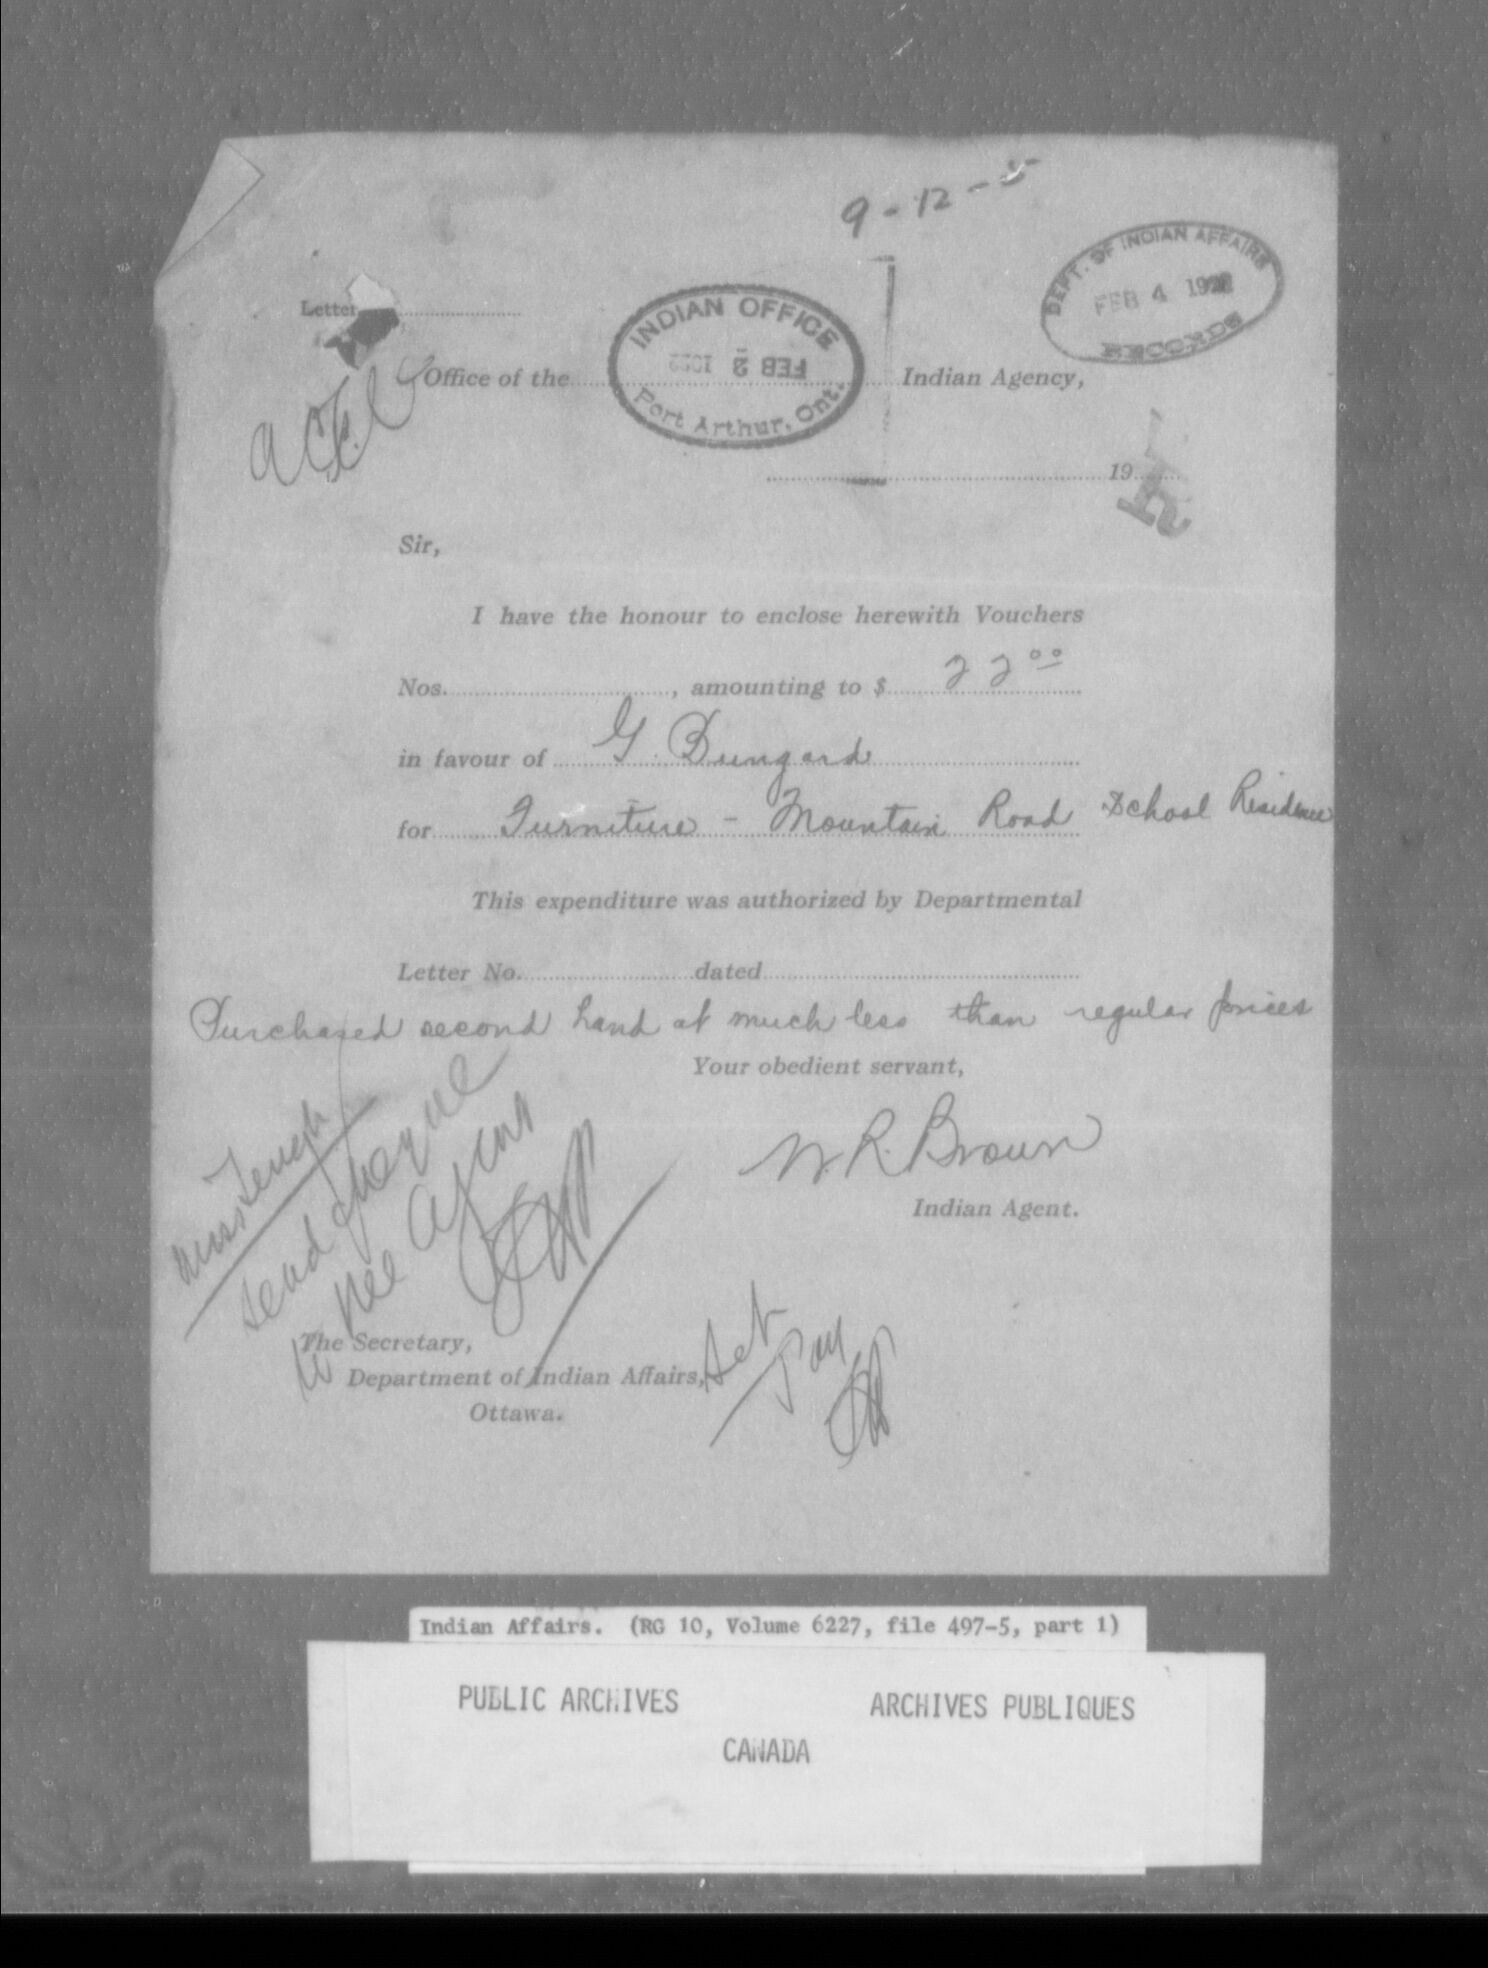 9-12-5
DEPT. OF INDIAN AFFAIRS
FEB 4 1922
RECORDS
Letter
INDIAN OFFICE
FEB 2 1922
Port Arthur, Ont.
Office of the Indian Agency,
19
Sir,
I have the honour to enclose herewith Vouchers
Nos. , amounting to $ 22 00
in favour of G. Bungard
for Furniture - Mountain Road School Residence
This expenditure was authorized by Departmental
Letter No. dated
Purchased second hand at much less than regular prices
Your obedient servant,
W. R. Brown
Indian Agent.
Miss
send cheque
to Agent
The Secretary,
Department of Indian Affairs,
Ottawa.
Pay
Indian Affairs. (RG 10, Volume 6227, file 497-5, part 1)
PUBLIC ARCHIVES ARCHIVES PUBLIQUES
CANADA